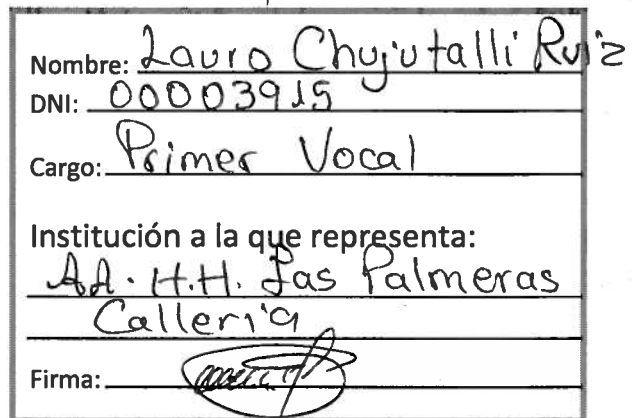 Nombre: Lauro Chujutalli Ruiz
DNI: 00003915
Cargo: Primer Vocal
Institución a la que representa:
AA. H.H. Las Palmeras
Calleria
Firma: